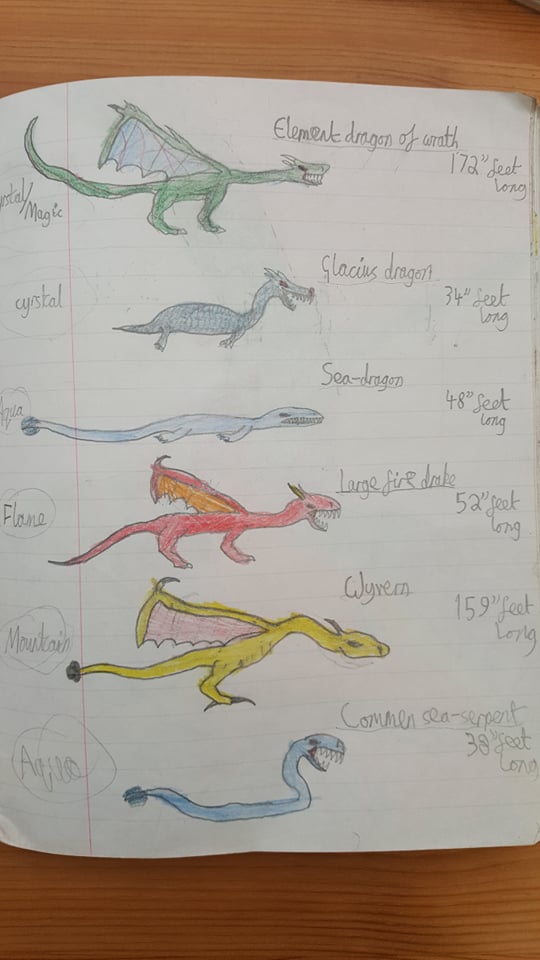 Element dragon of wrath
172" feet
long
/Magic
Glacius dragon
cyrstal
34" feet
long
Sea-dragon
Aqua
48" feet
long
Large fire drake
Flame
52" feet
long
Wyvern
Mountain
159" feet
long
Common sea-serpent
38" feet
long